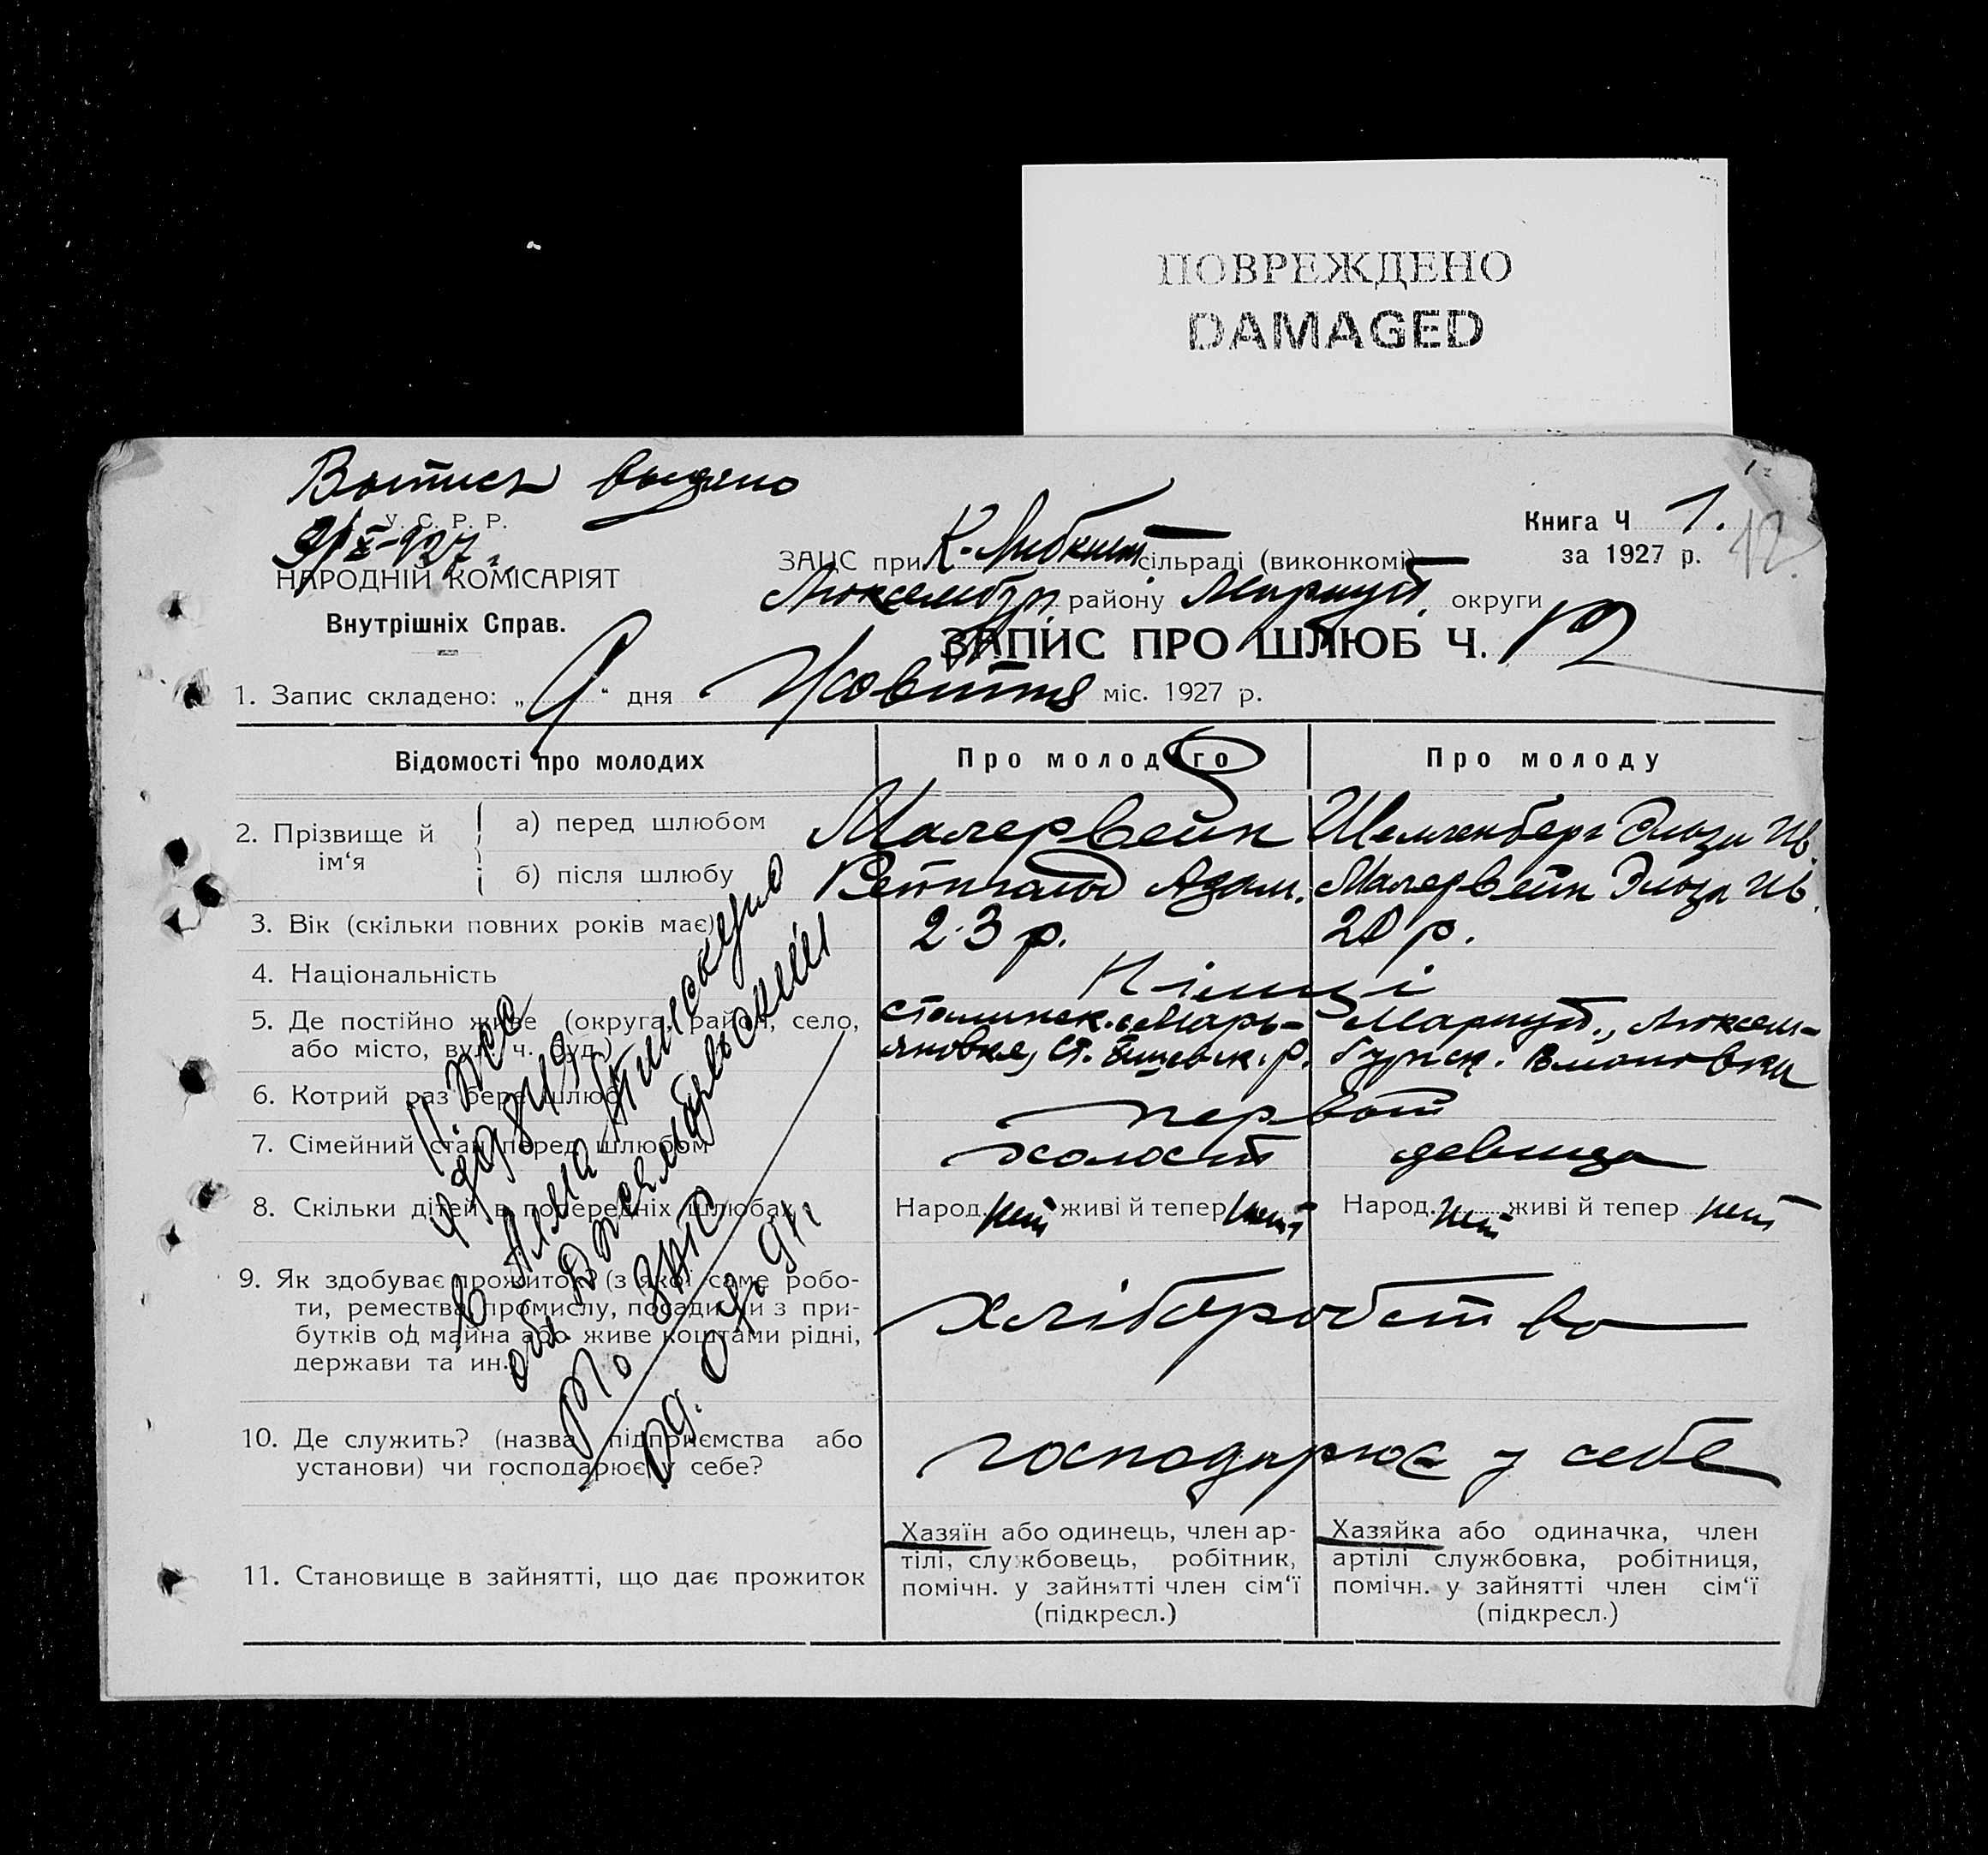 ПОВРЕЖДЕНО
DAMAGED
Выпись выдано
9/X-927 г.
У. С. Р. Р.
НАРОДНІЙ КОМІСАРІЯТ
Внутрішніх Справ.
ЗАЦС при К-Либкнет сільраді (виконкомі)
Люксембур району Маріуп. округи
Книга Ч 1.
за 1927 р.
12.
ЗАПИС ПРО ШЛЮБ Ч. 12
1. Запис складено: „9“ дня Жовтня міс. 1927 р.
Відомості про молодих
Про молодого
Про молоду
2. Прізвище й ім‘я
а) перед шлюбом
Малервейн
Шемленберг Эльза Ив.
б) після шлюбу
Рейнгольд Адам.
Малервейн Эльза Ив.
3. Вік (скільки повних років має)
23 р.
20 р.
4. Національність
Німці
5. Де постійно живе (округа, район, село,
або місто, вул., ч. буд.)
Сталинск. с Марь-
яновка, Ст. р.
Мариуп., Люксем-
бургск.
6. Котрий раз бере шлюб
первый
7. Сімейний стан перед шлюбом
холост
девица
8. Скільки дітей в попередніх шлюбах
Народ. нет живі й тепер нет
Народ. нет живі й тепер нет
9. Як здобуває прожиток? (з якої саме робо-
ти, ремества, промислу, посади чи з при-
бутків од майна або живе коштами рідні,
держави та ин.
хліборобство
10. Де служить? (назва підприємства або
установи) чи господарює у себе?
господарює у себе
11. Становище в зайнятті, що дає прожиток
Хазяїн або одинець, член ар-
тілі, службовець, робітник,
помічн. у зайнятті член сім‘ї
(підкресл.)
Хазяйка або одиначка, член
артілі службовка, робітниця,
помічн. у зайнятті член сім‘ї
(підкресл.)
в Алма Атинскую
обл. Джамбульский